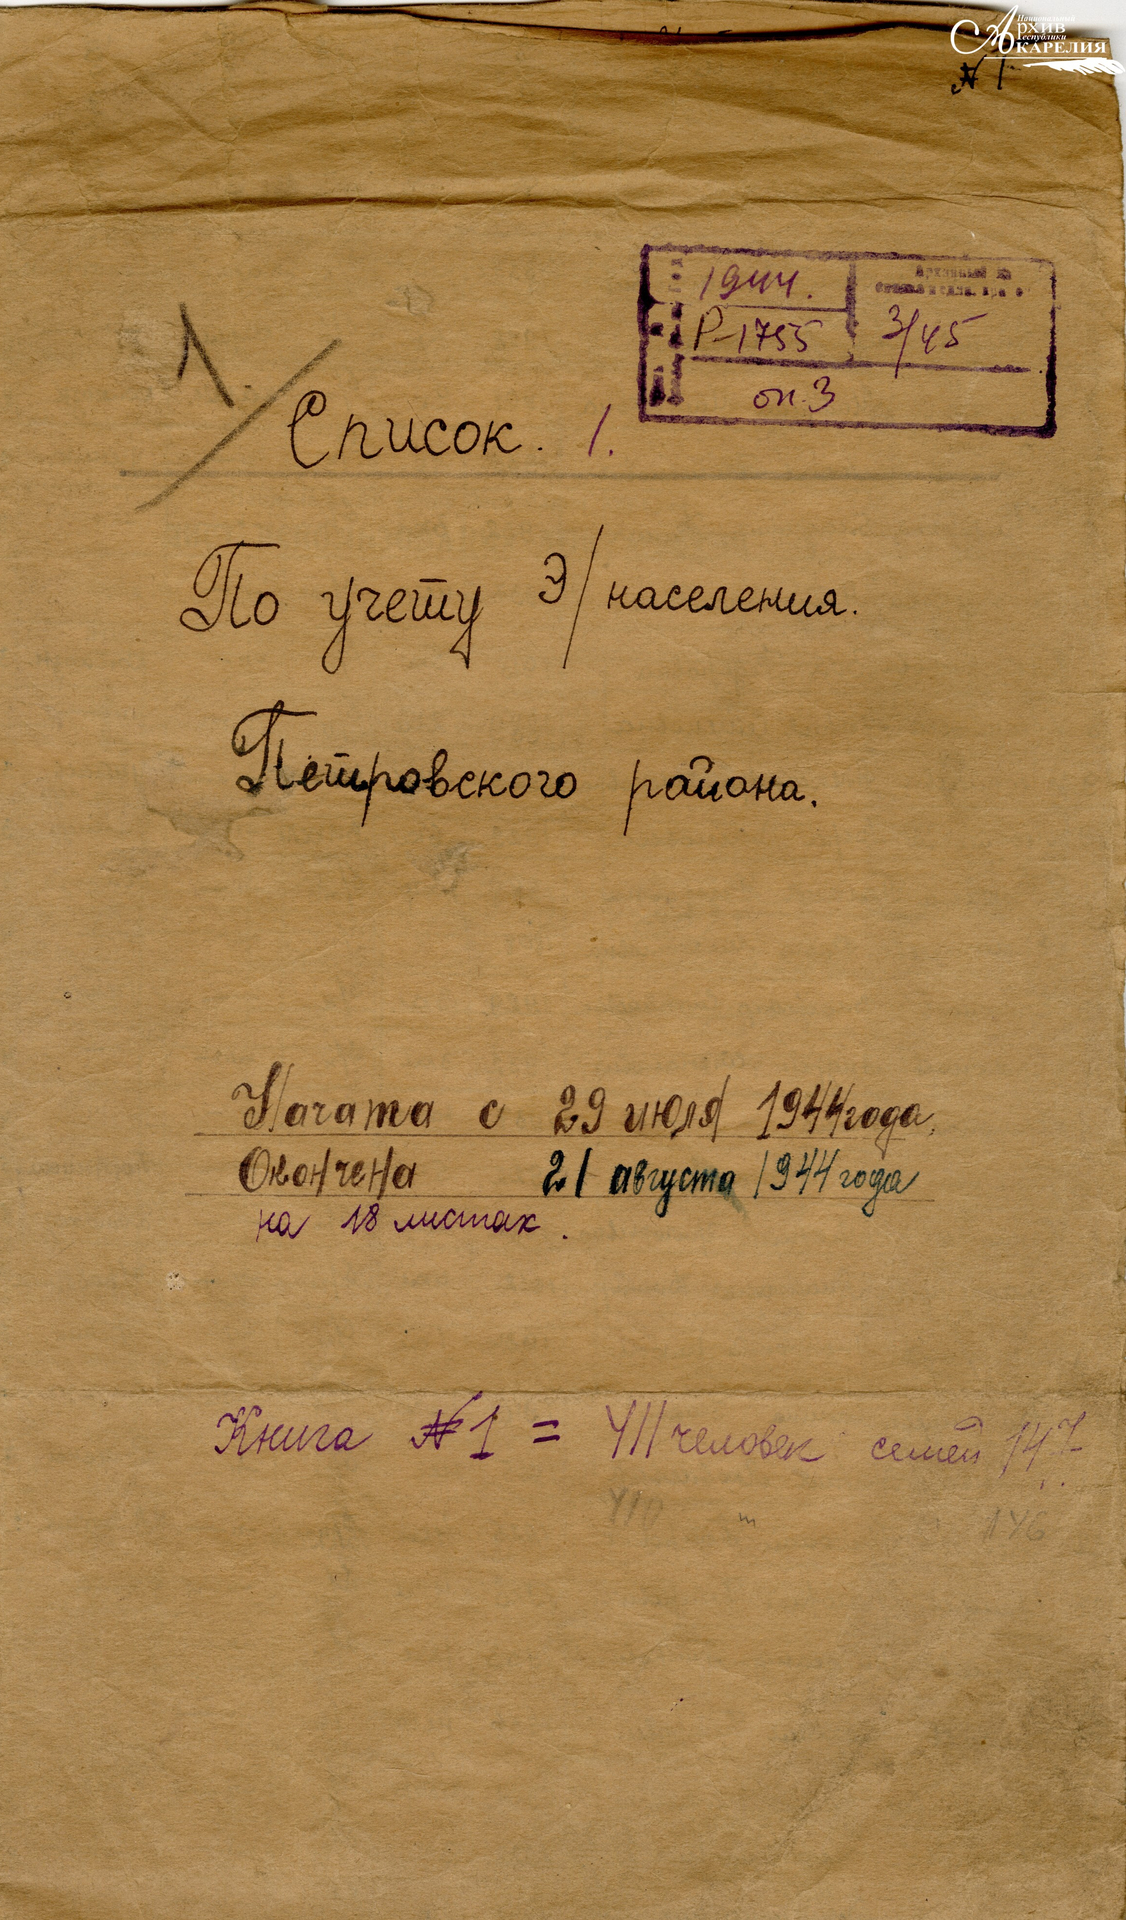 Национальный
Архив
Республики
КАРЕЛИЯ
№ 1
1944.
Р-1755
3/45
оп. 3
1.
Список. 1.
По учету Э/населения.
Петровского района.
Начата с 29 июля 1944 года.
Окончена 21 августа 1944 года
на 18 листах.
Книга № 1 = 411 человек семей 147
410 " 146